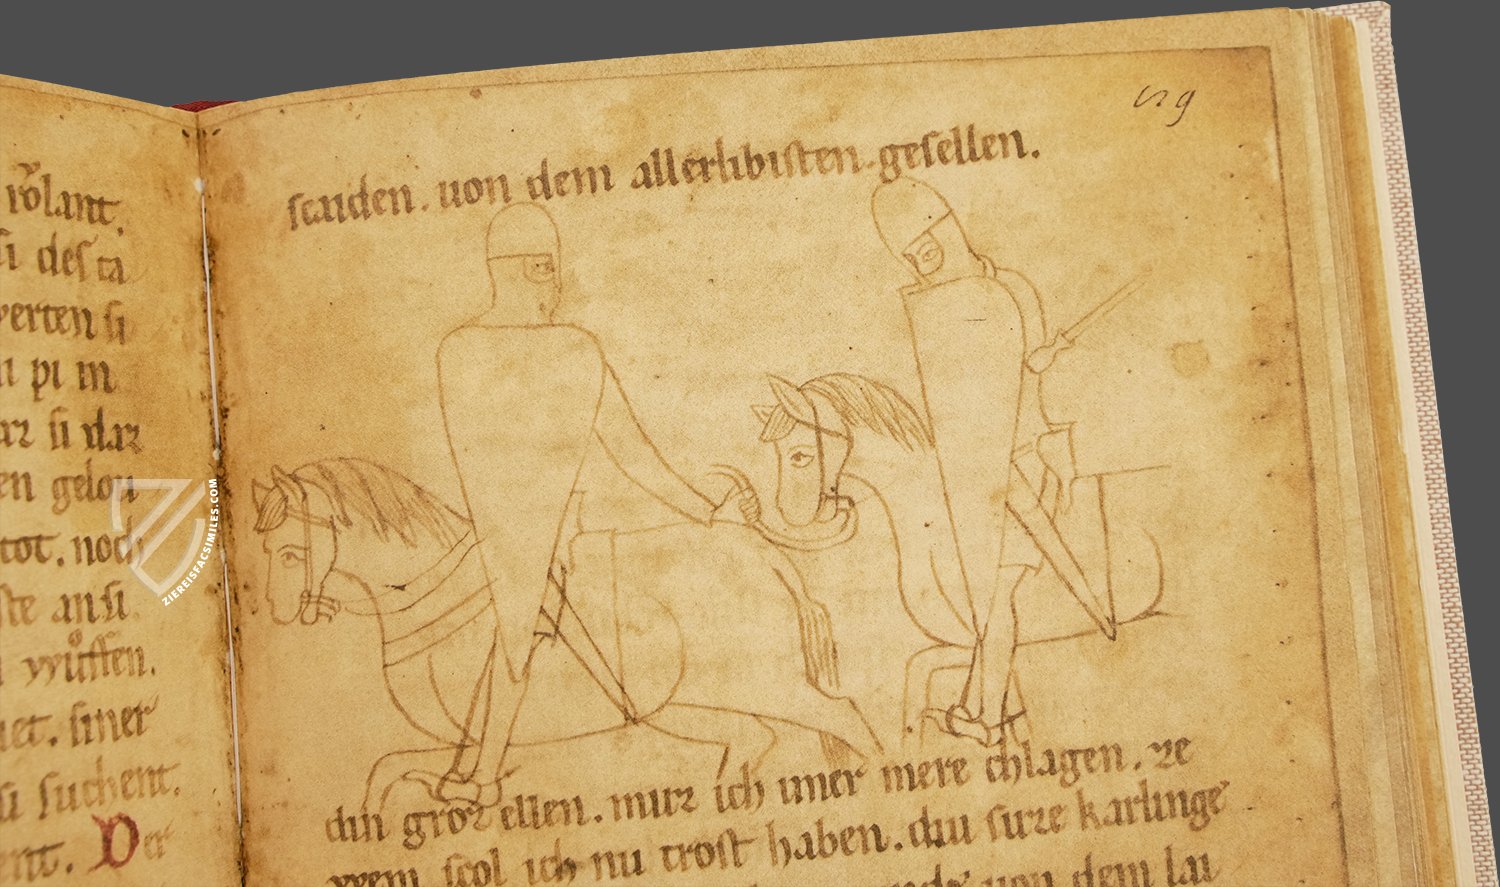 rölant,
si des ta
werten si
pi in
si daz
en gelou
tot. noch
ste an si
wůsten.
uet. siner
si suchent.
ent. Der
ZIEREISFACSIMILES.COM
scaiden. uon dem allerlibisten gesellen.
din groz ellen. muz ich imer mere chlagen. ze
wem scol ich nu trost haben. diu suze karlinge
uon dem lai